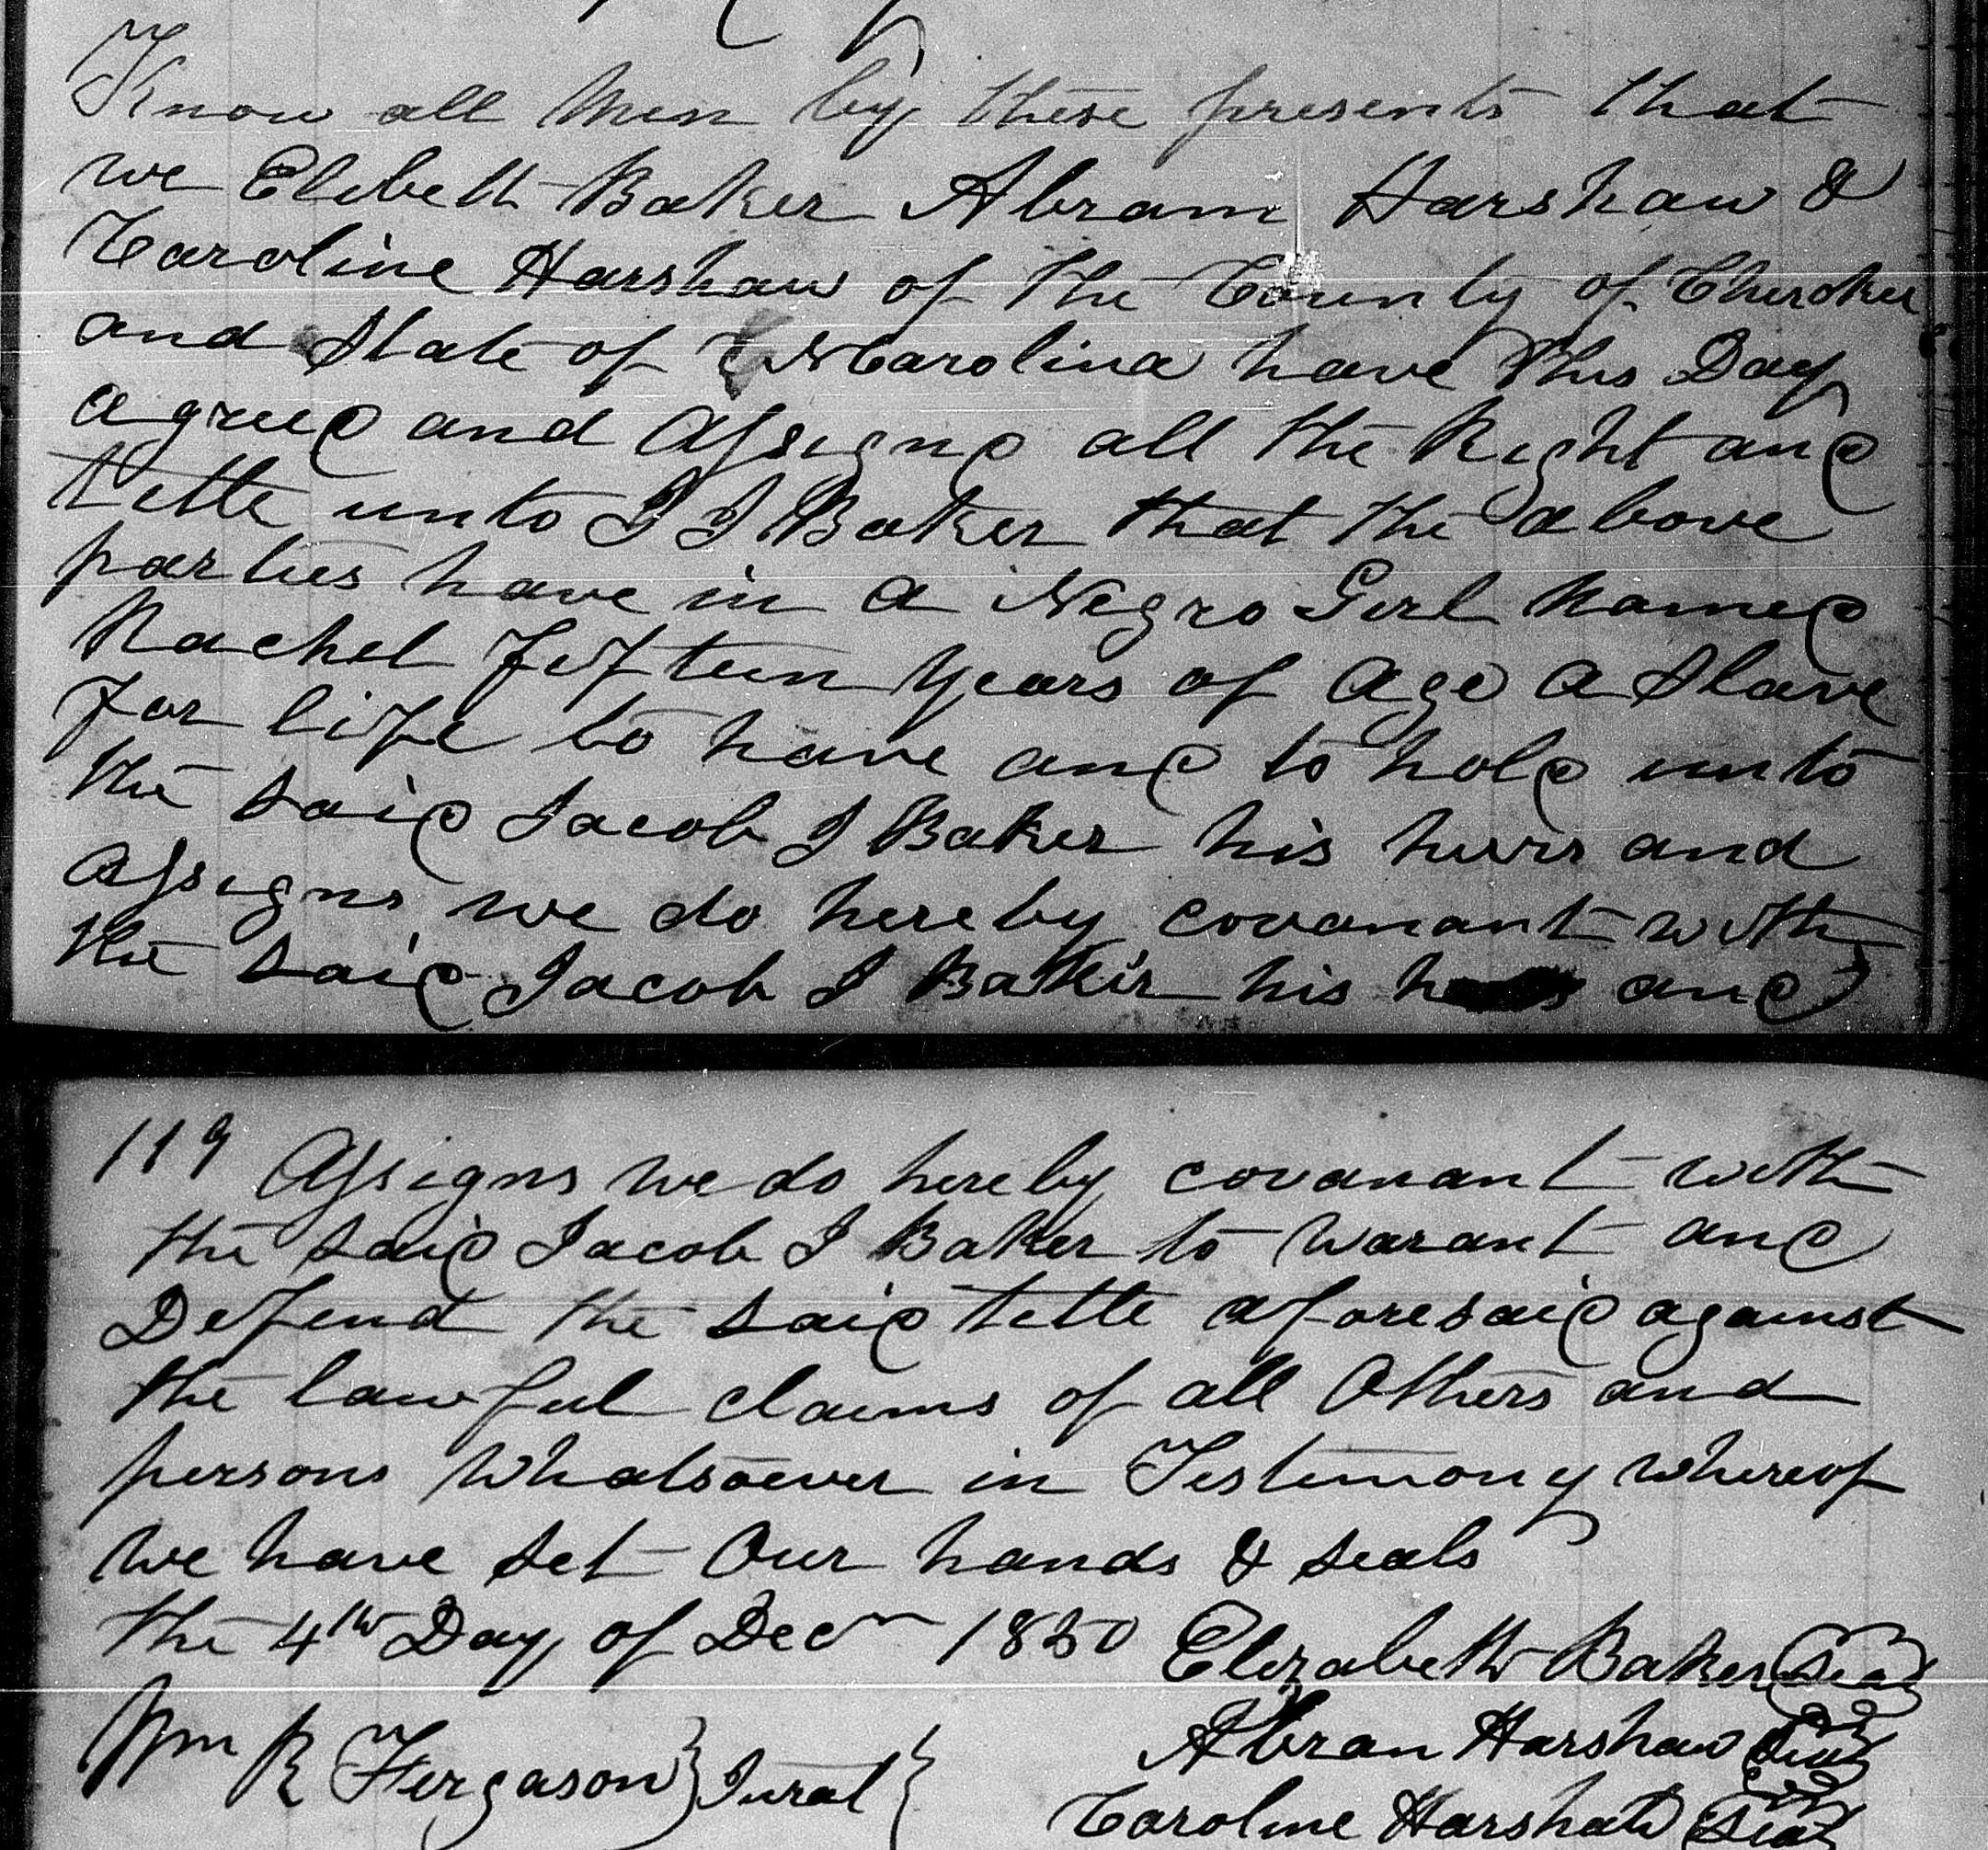 Know all Men by these presents that
we Elibett Baker Abram Harshaw &
Caroline Harshaw of the County of Cherokee
and State of N Carolina have this Day
agreed and Assigned all the Right and
title unto J J Baker that the above
parties have in a Negro Girl Named
Rachel fifteen years of Age a Slave
for life to have and to hold unto
the said Jacob J Baker his heirs and
Assigns we do hereby covanant with
the said Jacob J Baker his and
119 Assigns we do hereby covanant with
the said Jacob J Baker to warant and
Defend the said title aforesaid against
the lawful claims of all Others and
persons Whatsoever in Testimony whereof
we have set Our hands & seals
the 4th Day of Decm 1850 Elizabeth Baker Seal
Wm R Fergason } Jurat } Abran Harshaw Seal
Caroline Harshaw Seal